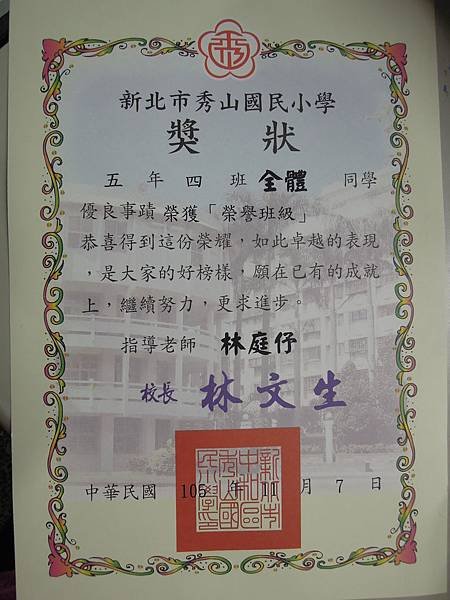 秀
新北市秀山國民小學
獎狀
五年四班全體同學
優良事蹟榮獲「榮譽班級」
恭喜得到這份榮耀，如此卓越的表現
，是大家的好榜樣，願在已有的成就
上，繼續努力，更求進步。
指導老師 林庭伃
校長 林文生
新北市中和區秀山國民小學印
中華民國 105 年 11 月 7 日